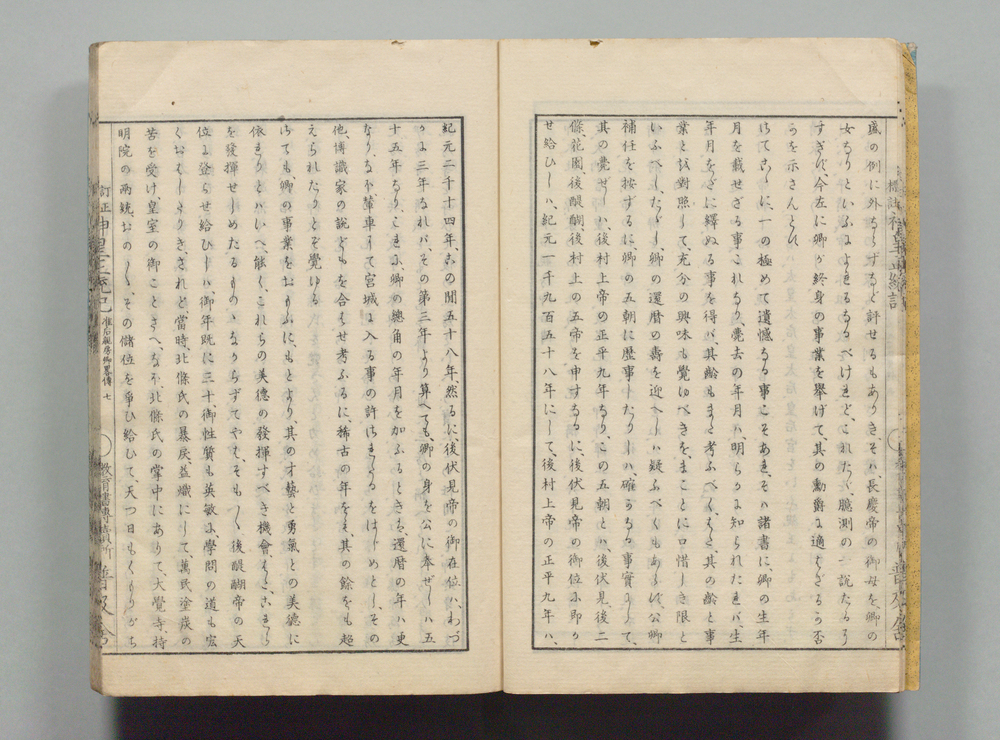 盛の例に外ならずなど評せるもありき、そハ長慶帝の御母を、卿の
女なりといふによれるなるべけれど、これたゞ臆測の一説たるに
すぎず、今左に卿が終身の事業を舉げて、其の勳爵に適よるか否
らを示さんとす、
さてこゝに、一の極めて遺憾なる事こそあれ、そハ諸書に、卿の生年
月を載せざる事これなり、薨去の年月ハ、明らかに知られたれバ、生
年月をだに繹ぬる事を得バ、其齡もまた考ふべく、また其の齡と事
業とを對照して、充分の興味も覺ゆべきを、まことに口惜しき限と
いふべし、たゞし、卿の還暦の壽を迎へしハ疑ふべくもあらず、公卿
補任を按ずるに、卿の五朝に歴事したりしハ、確かなる事實にして、
其の薨ぜしハ、後村上帝の正平九年なり、この五朝とハ、後伏見、後二
條、花園、後醍醐、後村上の五帝を申すなるに、後伏見帝の御位に即か
せ給ひしハ、紀元一千九百五十八年にして、後村上帝の正平九年ハ、
紀元二千十四年、この間五十八年、然るに、後伏見帝の御在位ハ、わづ
かに三年なれバ、その第三年より算へても、卿の身を公に奉ぜしハ五
十五年なり、これに、卿の總角の年月を加ふるときハ、還暦の年ハ更
なり、なほ輦車にて宮城に入る事の許さるゝをはじめとし、その
他、博識家の説どもを合はせ考ふるに、稀古の年をも、其の餘をも超
えられたりとぞ覺ゆる、
さても、卿の事業をおもふに、もとより、其の才藝と勇氣との美徳に
依れりとハいへ、能く、これらの美徳の發揮すべき機會、また、これら
を發揮せしめたるものゝなからずてやむ、そも〱、後醍醐帝の天
位に登らせ給ひしハ、御年既に三十、御性質も英敏に、學問の道も宏
くおはしましき、されど、當時、北條氏の暴戻益熾にして、萬民塗炭の
苦を受け、皇室の御ことさへ、なほ、北條氏の掌中にありて、大覺寺、持
明院の兩統、おの〱、その儲位を爭ひ給ひて、天つ日もくもりがち
訂正神皇正統記 准后親房卿畧傳 七
教育書專賣所 普及舍